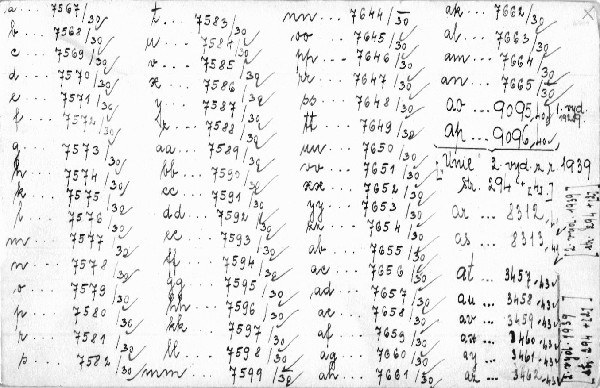 a... 7567/30
b... 7568/30
c... 7569/30
d... 7570/30
e... 7571/30
f... 7572/30
g... 7573/30
h... 7574/30
k... 7575/30
l... 7576/30
m... 7577/30
n... 7578/30
o... 7579/30
p... 7580/30
r... 7581/30
s... 7582/30
t... 7583/30
u... 7584/30
v... 7585/30
x... 7586/30
y... 7587/30
z... 7588/30
aa... 7589/30
bb... 7590/30
cc... 7591/30
dd... 7592/30
ee... 7593/30
ff... 7594/30
gg... 7595/30
hh... 7596/30
kk... 7597/30
ll... 7598/30
mm... 7599/30
nn... 7644/30
oo... 7645/30
pp... 7646/30
rr... 7647/30
ss... 7648/30
tt... 7649/30
uu... 7650/30
vv... 7651/30
xx... 7652/30
yy... 7653/30
zz... 7654/30
ab... 7655/30
ac... 7656/30
ad... 7657/30
ae... 7658/30
af... 7659/30
ag... 7660/30
ah... 7661/30
ak... 7662/30
al... 7663/30
am... 7664/30
an... 7665/30
ao... 9095/40
1. vyd. 1929.
ap... 9096/40
2 vyd. z r 1939
str. 294
ar... 8312
as... 8313
at... 3457/43
au... 3458/43
av... 3459/43
ax... 3460/43
ay... 3461/43
az... 3462/43